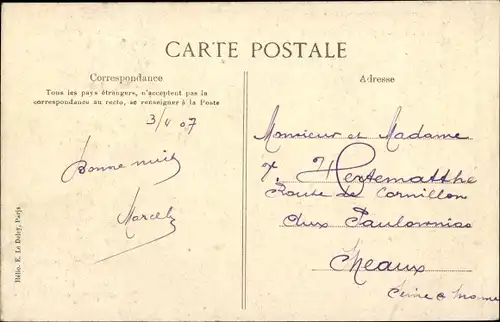 CARTE POSTALE
Correspondance
Tous les pays étrangers, n'acceptent pas la
correspondance au recto, se renseigner à la Poste
3/V 07
Bonne nuit
Marcel
Adresse
Monsieur et Madame
Route de Cornillon
aux Paulownias
Meaux
Seine & Marne
Hélio. E. Le Deley, Paris